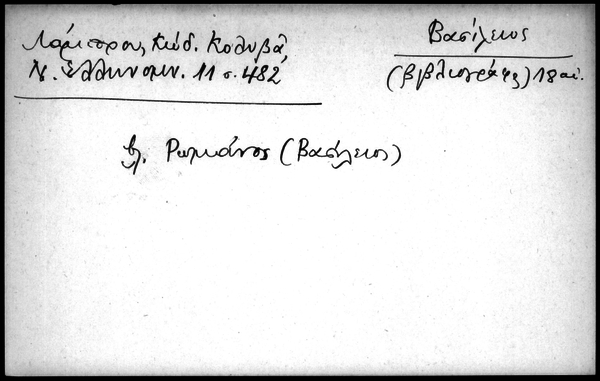 Λάμπρου, Κώδ. Κολυβᾶ
Ν. Ἑλληνομν. 11 σ. 482
Βασίλειος
(βιβλιογράφος) 18 αἰ.
βλ. Ρωμάνος (Βασίλειος)